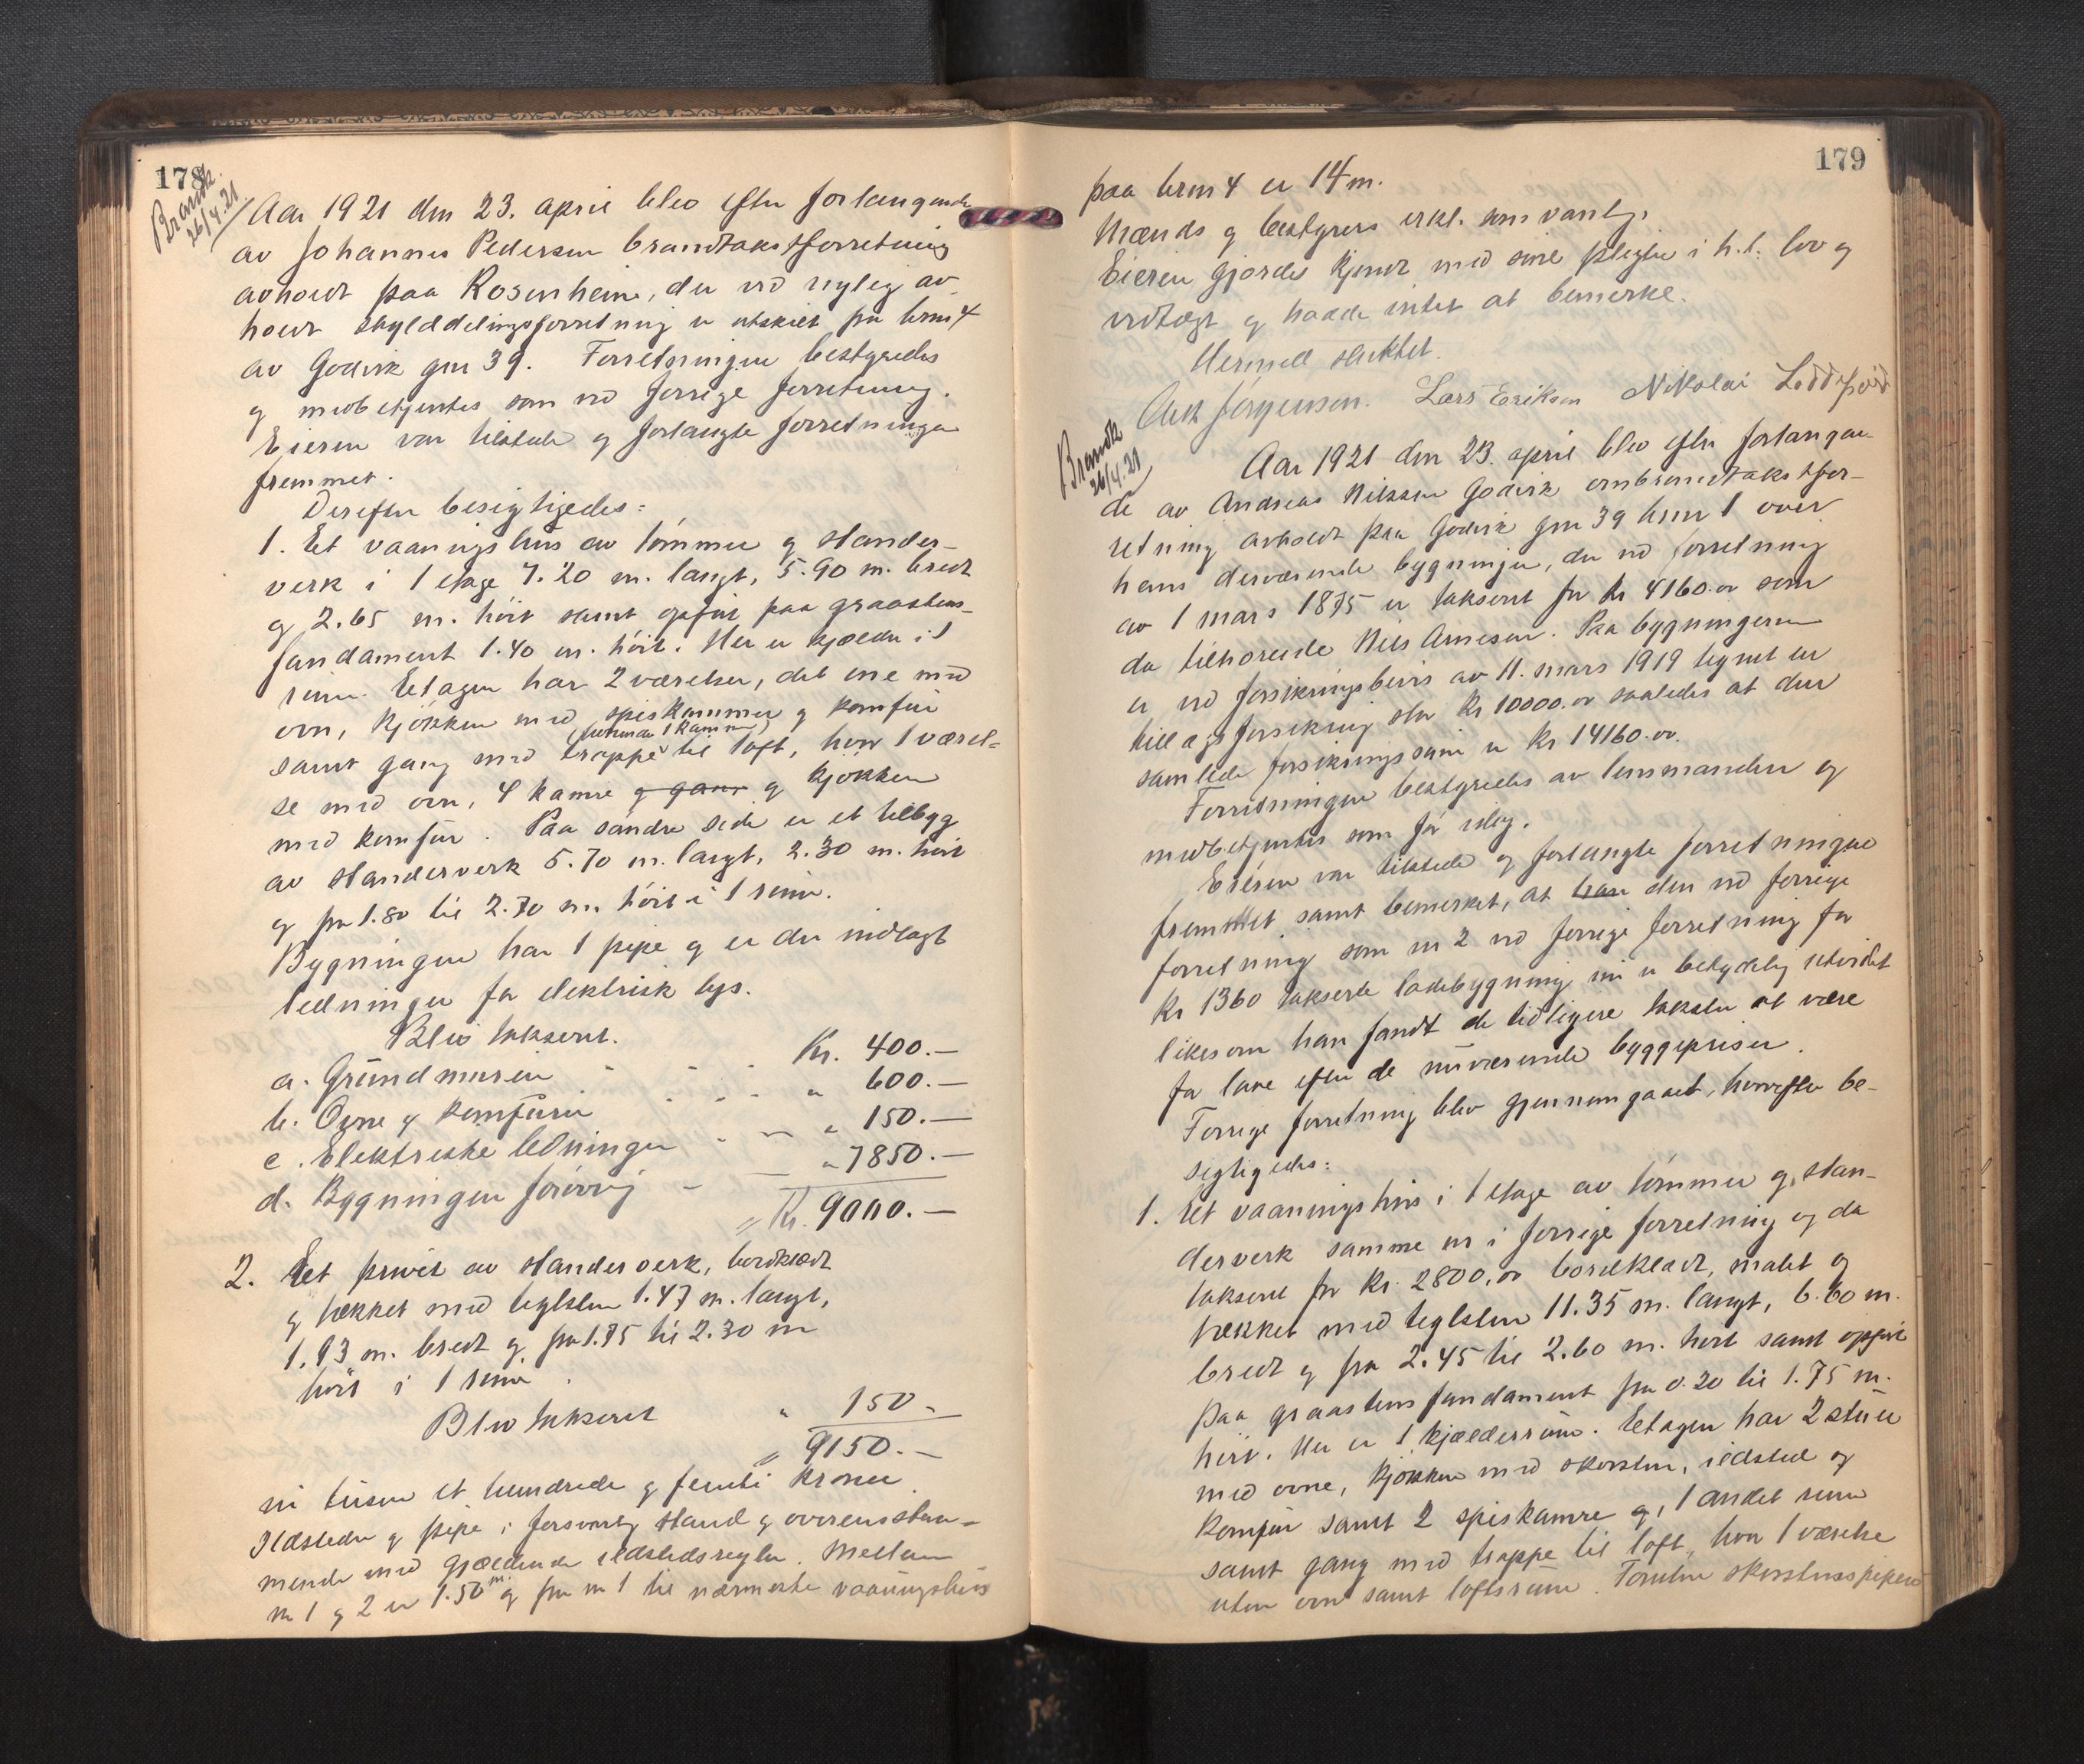 178
Brandk.
26/4.21
Aar 1921 den 23. april blev efter forlangende
av Johannes Pedersen brandtakstforretning
avholdt paa Rosenheim, der ved nylig av-
holdt skylddelingsforretning er utskilt fra brnr 4
av Godvik gnr 39. Forretningen bestyredes
og medbetjentes som ved forrige forretning.
Eieren var tilstede og forlangte forretningen
fremmet.
Derefter besigtigedes:
1. Et vaaningshus av tømmer og stander-
verk i 1 etage 7.20 m. langt, 5.90 m. bredt
og 2.65 m. høit samt opført paa graastens-
fundament 1.40 m. høit. Her er kjælder i 1
rum. Etagen har 2 værelser, det ene med
ovn, kjøkken med spiskammer og komfur
(herunder 1 kammer)
samt gang med trappe til loft, hvor 1 værel-
se med ovn, 4 kamre og gang og kjøkken
med komfur. Paa søndre side er et tilbyg
av standerverk 5.70 m. langt, 2.30 m. høit
og fra 1.80 til 2.70 m. høit i 1 rum.
Bygningen har 1 pipe og er der indlagt
ledninger for elektrisk lys.
Blev takseret.
a. Grundmuren Kr. 400.—
b. Ovne og komfurer " 600.—
c. Elektriske ledninger " 150.—
d. Bygningen forøvrig " 7850.—
Kr. 9000.—
2. Et privet av standerverk, bordklædt
og tækket med teglsten 1.47 m. langt,
1.93 m. bredt og fra 1.75 til 2.30 m
høit i 1 rum.
Blev takseret " 150.-
" 9150.—
ni tusen et hundrede og femti kroner
Ildsteder og pipe i forsvarlig stand og overensstem-
mende med gjældende ildstedsregler. Mellem
nr 1 og 2 er 1.50 m. og fra nr 1 til nærmeste vaaningshus
179
paa brnr 4 er 14 m.
Mænds og bestyrers erkl. som vanlig.
Eieren gjordes kjendt med sine pligter i h.t. lov og
vedtægt og hadde intet at bemerke.
Hermed sluttet.
Ant Jørgensen. Lars Erikson Nikolai Loddefjord
Brandk
26/4.21
Aar 1921 den 23. april blev efter forlangen-
de av Andreas Nilssen Godvik ombrandtakstfor-
retning avholdt paa Godvik gnr 39 brnr 1 over
hans derværende bygninger, der ved forretning
av 1 mars 1875 er takseret for kr 4160.00 som
da tilhørende Nils Arnesen. Paa bygningerne
er ved forsikringsbevis av 11. mars 1919 tegnet en
tillægsforsikring stor kr 10000.00 saaledes at den
samlede forsikringssum er kr 14160.00.
Forretningen bestyredes av lensmanden og
medbetjentes som før idag.
Eieren var tilstede og forlangte forretningen
fremmet samt bemerket, at han den ved forrige
forretning som nr 2 ved forrige forretning for
kr 1360 takserte ladebygning nu er betydelig utvidet
likesom han fandt de tidligere takster at være
for lave efter de nuværende byggepriser.
Forrige forretning blev gjennemgaaet, hvorefter be-
sigtigedes:
1. Et vaaningshus i 1 etage av tømmer og stan-
derverk samme nr i forrige forretning og da
takseret for kr. 2800.00 bordklædt, malet og
tækket med teglsten 11.35 m. langt, 6.60 m.
bredt og fra 2.45 til 2.60 m. høit samt opført
paa graastensfundament fra 0.20 til 1.75 m.
høit. Her er 1 kjælderrum. Etagen har 2 stuer
med ovne, kjøkken med skorsten, ildsted og
komfur samt 2 spiskamre og 1 andet rum
samt gang med trappe til loft, hvor 1 værelse
uten ovn samt loftsrum. Foruten skorstenspipen